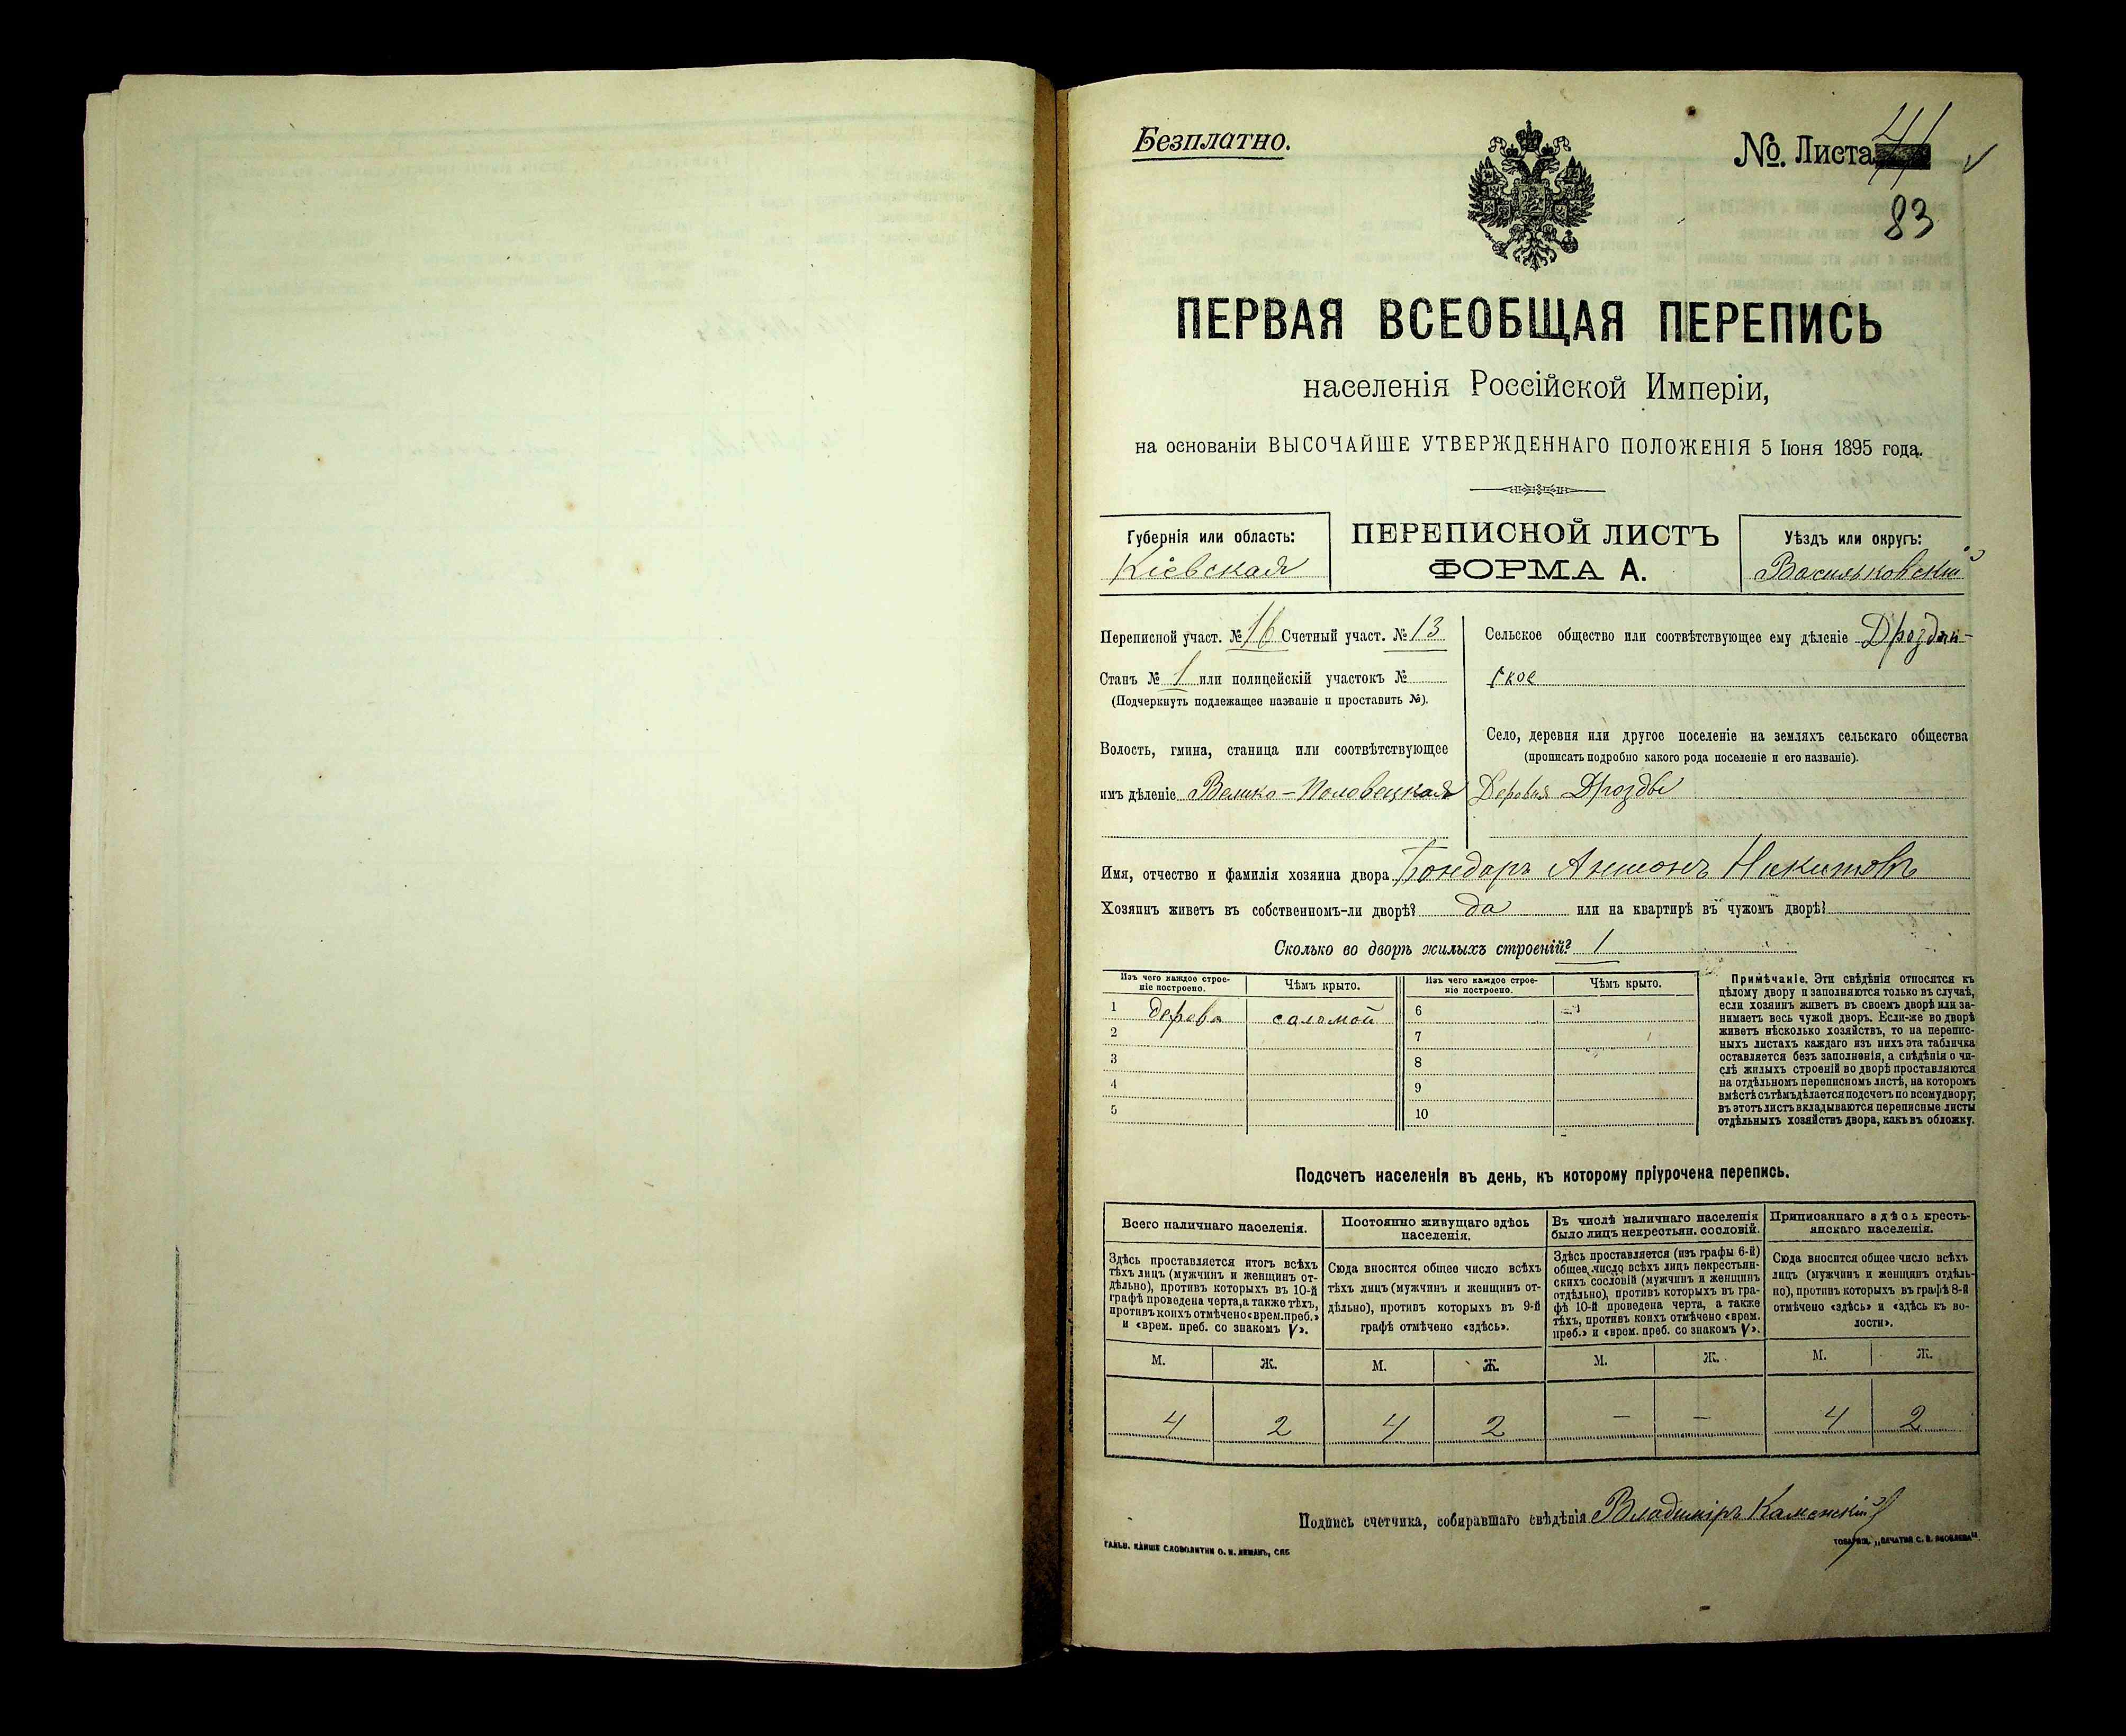 Безплатно.
№. Листа 41
83
ПЕРВАЯ ВСЕОБЩАЯ ПЕРЕПИСЬ
населенія Россійской Имперіи,
на основаніи ВЫСОЧАЙШЕ УТВЕРЖДЕННАГО ПОЛОЖЕНІЯ 5 Іюня 1895 года.
Губернія или область:
Кіевская
ПЕРЕПИСНОЙ ЛИСТЪ
ФОРМА А.
Уѣздъ или округъ:
Васильковскій
Переписной участ. № 16 Счетный участ. № 13
Станъ № 1 или полицейскій участокъ №
(Подчеркнуть подлежащее названіе и проставить №).
Волость, гмина, станица или соотвѣтствующее
имъ дѣленіе Велико-Половецкая
Сельское общество или соотвѣтствующее ему дѣленіе Дроздян-
ское
Село, деревня или другое поселеніе на земляхъ сельскаго общества
(прописать подробно какого рода поселеніе и его названіе).
Деревня Дрозды
Имя, отчество и фамилія хозяина двора Бондарь Антонъ Никитовъ
Хозяинъ живетъ въ собственномъ-ли дворѣ? да или на квартирѣ въ чужомъ дворѣ?
Сколько во дворѣ жилыхъ строеній? 1
Изъ чего каждое строе-
ніе построено.
Чѣмъ крыто.
Изъ чего каждое строе-
ніе построено.
Чѣмъ крыто.
1 дерева соломой 6
2 7
3 8
4 9
5 10
Примѣчаніе. Эти свѣдѣнія относятся къ
цѣлому двору и заполняются только въ случаѣ,
если хозяинъ живетъ въ своемъ дворѣ или за-
нимаетъ весь чужой дворъ. Если-же во дворѣ
живетъ нѣсколько хозяйствъ, то на перепис-
ныхъ листахъ каждаго изъ нихъ эта табличка
оставляется безъ заполненія, а свѣдѣнія о чи-
слѣ жилыхъ строеній во дворѣ проставляются
на отдѣльномъ переписномъ листѣ, на которомъ
вмѣстѣ съ тѣмъ дѣлается подсчетъ по всему двору;
въ этотъ листъ вкладываются переписные листы
отдѣльныхъ хозяйствъ двора, какъ въ обложку.
Подсчетъ населенія въ день, къ которому пріурочена перепись.
Всего наличнаго населенія.
Постоянно живущаго здѣсь
населенія.
Въ числѣ наличнаго населенія
было лицъ некрестьян. сословій.
Приписаннаго здѣсь кресть-
янскаго населенія.
Здѣсь проставляется итогъ всѣхъ
тѣхъ лицъ (мужчинъ и женщинъ от-
дѣльно), противъ которыхъ въ 10-й
графѣ проведена черта, а также тѣхъ,
противъ коихъ отмѣчено «врем. преб.»
и «врем. преб. со знакомъ V».
Сюда вносится общее число всѣхъ
тѣхъ лицъ (мужчинъ и женщинъ от-
дѣльно), противъ которыхъ въ 9-й
графѣ отмѣчено «здѣсь».
Здѣсь проставляется (изъ графы 6-й)
общее число всѣхъ лицъ некрестьян-
скихъ сословій (мужчинъ и женщинъ
отдѣльно), противъ которыхъ въ гра-
фѣ 10-й проведена черта, а также
тѣхъ, противъ коихъ отмѣчено «врем.
преб.» и «врем. преб. со знакомъ V».
Сюда вносится общее число всѣхъ
лицъ (мужчинъ и женщинъ отдѣль-
но), противъ которыхъ въ графѣ 8-й
отмѣчено «здѣсь» и «здѣсь къ во-
лости».
М. Ж. М. Ж. М. Ж. М. Ж.
4 2 4 2 — — 4 2
Подпись счетчика, собиравшаго свѣдѣнія Владиміръ Каменскій
ГАЛЬВ. КЛИШЕ СЛОВОЛИТНИ О. И. ЛЕМАНЪ, СПБ
ТОВАРИЩ. „ПЕЧАТНЯ С. П. ЯКОВЛЕВА“.